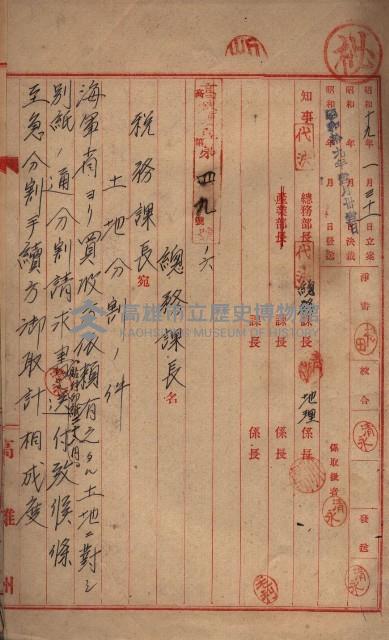 秘
昭和十九年一月三十一日立案
昭和 年 月 日決裁
昭和 年 月 日發送
淨書
校合
發送
係取扱者
知事代決
總務部長代決
產業部長
總務課長
課長
課長
地理係長
係長
係長
第四九號
ノ六
總務課長名
稅務課長宛
土地分割ノ件
海軍省ヨリ買收方依賴有之タル土地ニ對シ
別紙ノ通分割請求書送付致候條
至急分割手續方御取計相成度
高雄州
高雄市立歷史博物館
KAOHSIUNG MUSEUM OF HISTORY